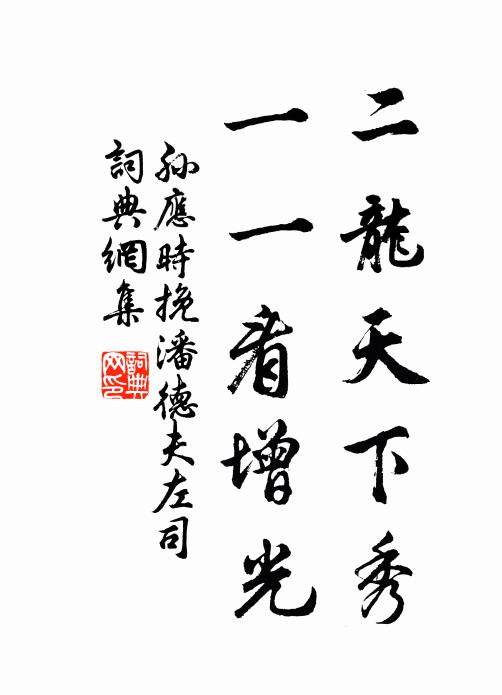 二龍天下秀
一一看增光
孫應時挽潘德夫左司
詞典網集
詞典
网印